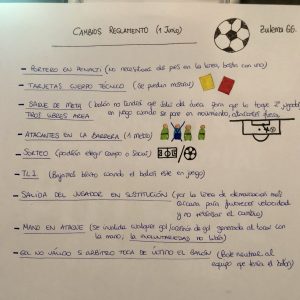 CAMBIOS REGLAMENTO (1 JUNIO)
Zulema GG.
- PORTERO EN PENALTI (No necesitará dos pies en la línea, basta con uno)
- TARJETAS CUERPO TÉCNICO (Se podrán mostrar)
- SAQUE DE META (balón no tendrá que salir del área para que lo toque 2º jugador
en juego cuando se pone en movimiento, atacantes fuera
TIROS LIBRES ÁREA
- ATACANTES EN LA BARRERA (1 metro)
- SORTEO (podrán elegir campo o saque)
- TL1 (Bajamos brazo cuando el balón esté en juego)
- SALIDA DEL JUGADOR EN SUSTITUCIÓN (por la línea de demarcación más
cercana, para favorecer velocidad
y no retrasar el cambio)
- MANO EN ATAQUE (Se invalida cualquier gol/ocasión de gol generada al tocar con
la mano; la involuntariedad no vale)
- GOL NO VÁLIDO SI ÁRBITRO TOCA DE ÚLTIMO EL BALÓN (Bote neutral al
equipo que tenía el balón)